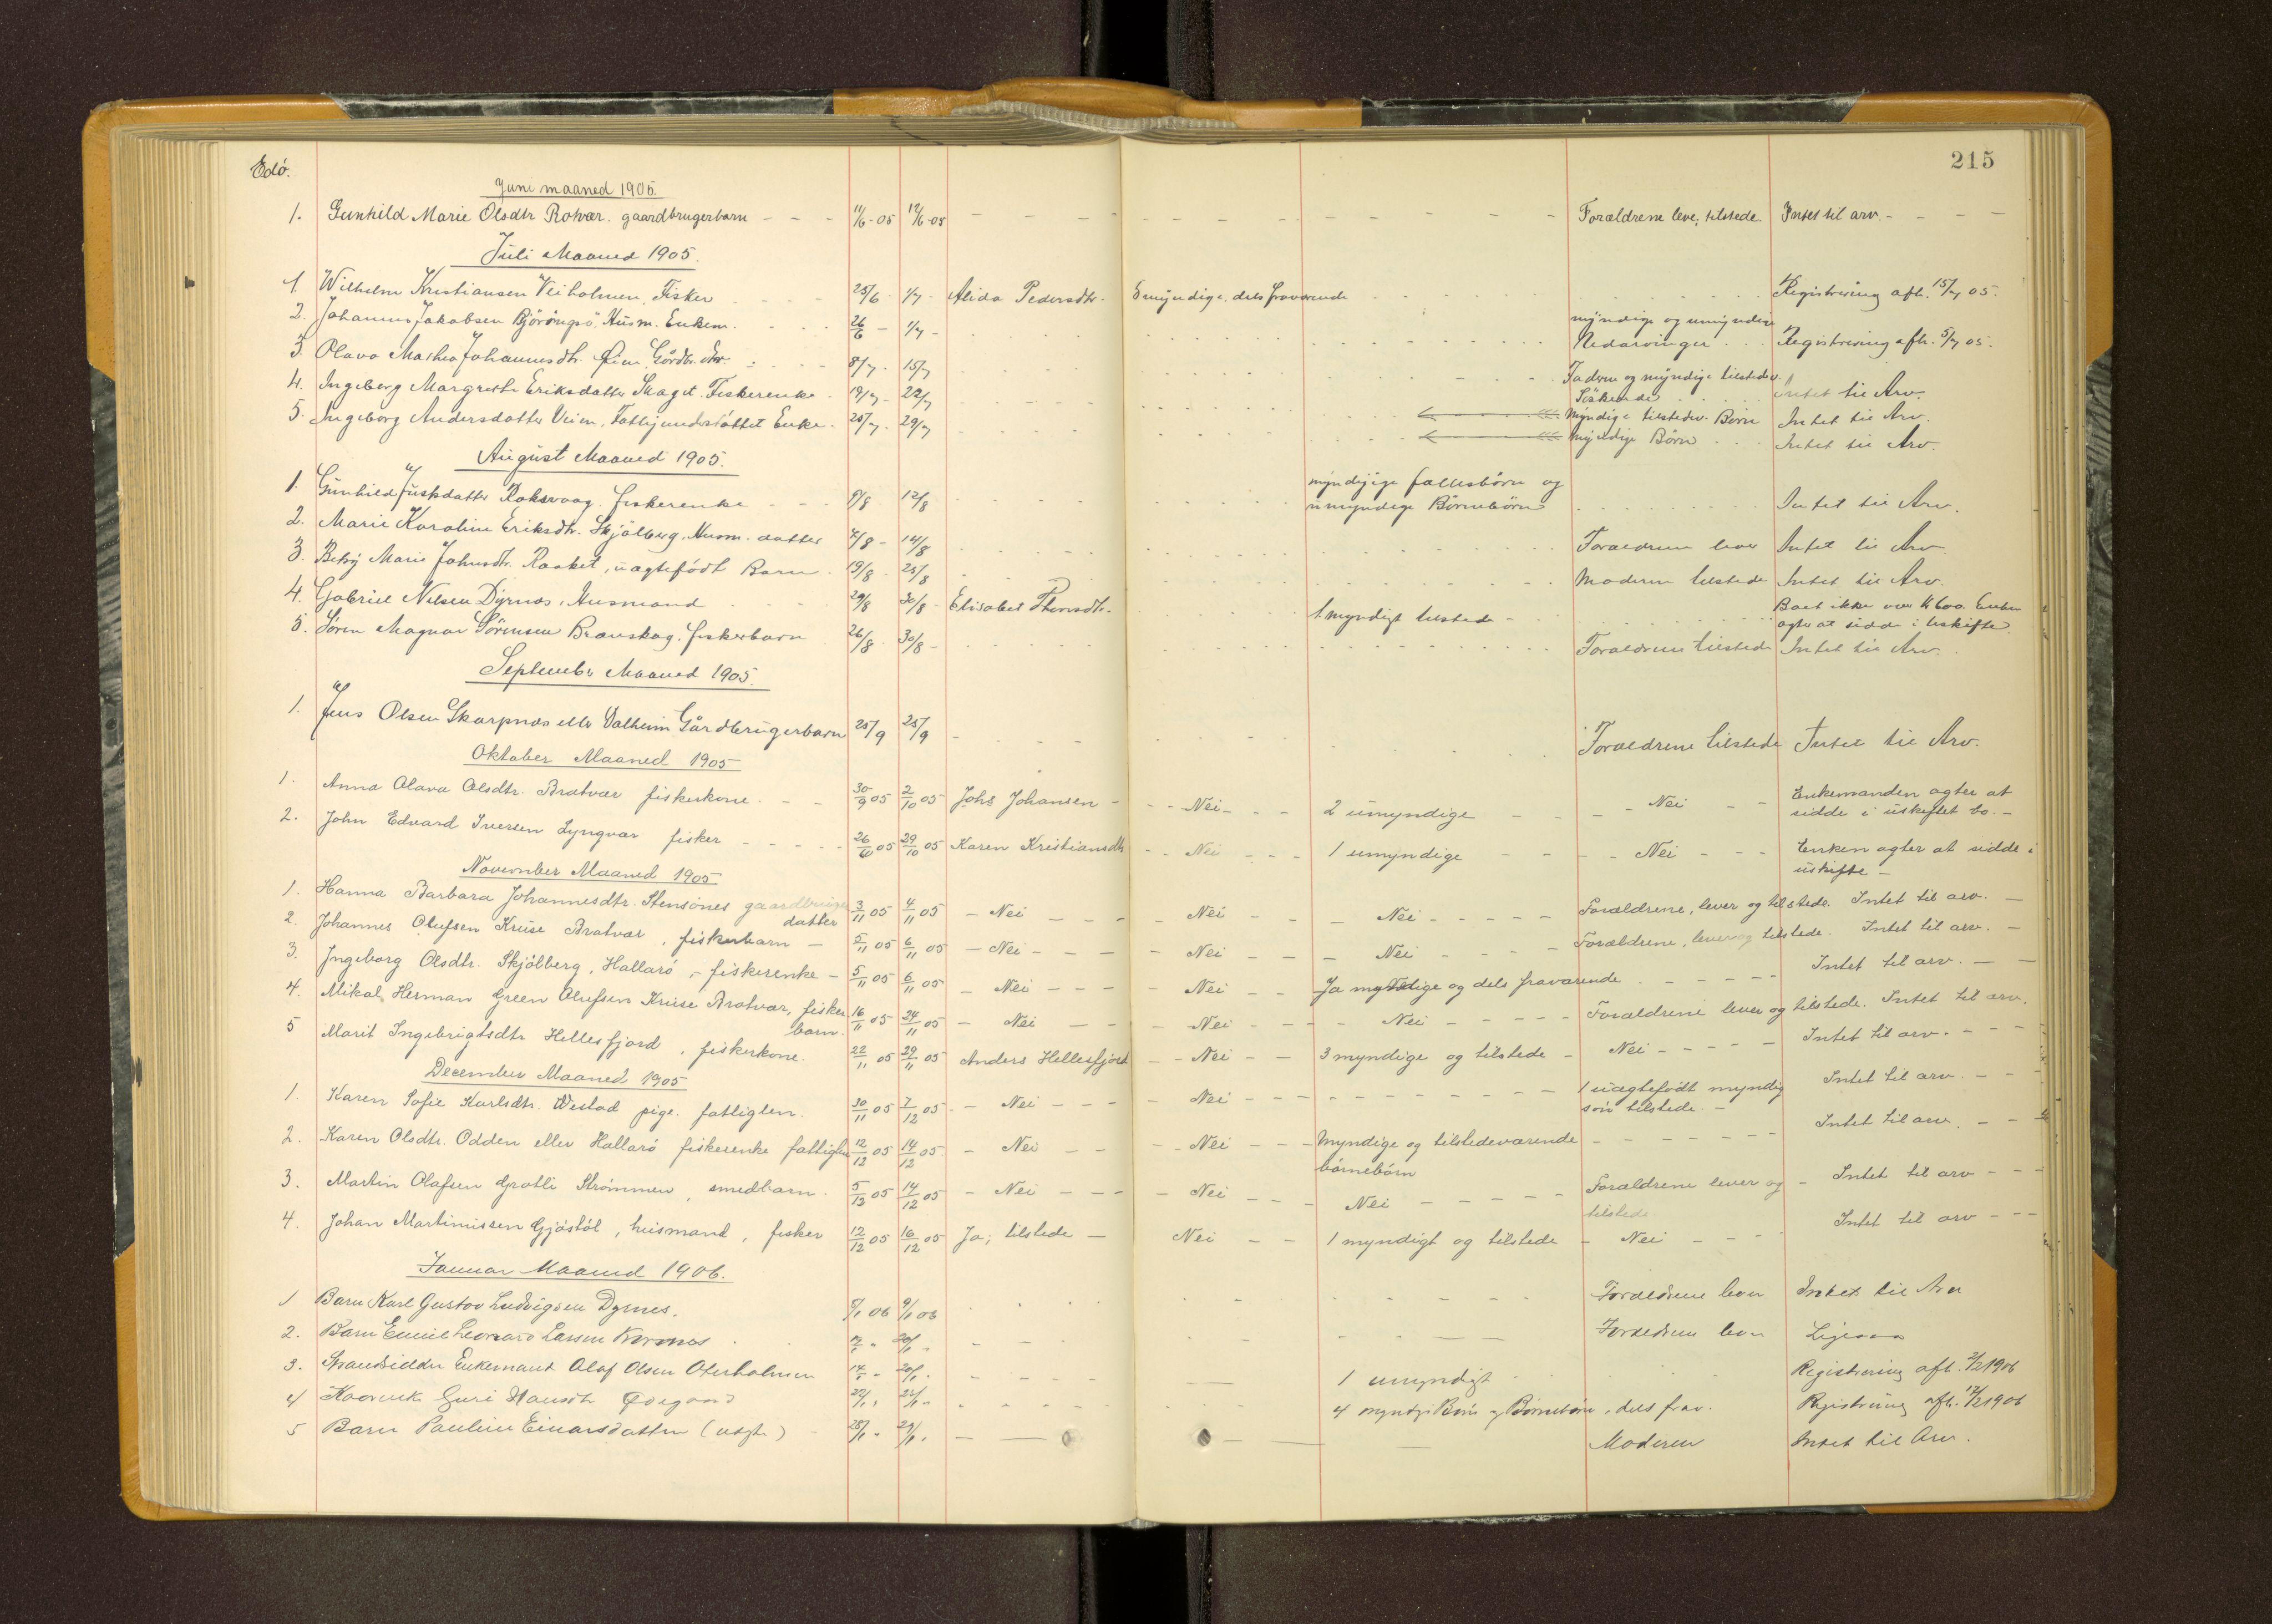 Edö.
215
Juni maaned 1905.
1. Gunhild Marie Olsdtr Rotvær. gaardbrugerbarn - - - 11/6-05 12/6-05 Forældrene leve, tilstede. Intet til arv.
Juli Maaned 1905.
1. Wilhelm Kristiansen Veiholmen, Fisker 25/6 - 1/7 - Alida Pedersdtr. 5 myndige, dels fraværende Registrering afh. 15/7 05.
2. Johannes Jakobsen Husm. Enkem. 26/6 - 1/7 - myndige og umyndige
Nedarvinger Registrering afh. 5/7 05.
3. Olava Johannesdtr. 8/7 - 15/7 Faderen og myndige tilstedev.
Søskende Intet til Arv.
4. Ingeborg Margrethe Eriksdatter Skaget. Fiskerenke 19/7 - 22/7 Myndige tilstedev. Børn Intet til Arv.
5. Ingeborg Andersdatter Veien, Fattigunderstøttet Enke. 25/7. 29/7 Myndige Børn Intet til Arv.
August Maaned 1905.
1. Gunhild Roksvaag. fiskerenke 9/8 12/8 myndige fællesbørn og
umyndige Børnebørn Intet til Arv.
2. Marie Karoline Eriksdtr. Skjölberg, Husm. datter 7/8 - 14/8 Forældrene lever Intet til Arv.
3. Betzy Marie Johnsdtr. Raaket, uægtefödt Barn 19/8 25/8 Moderen tilstede Intet til Arv.
4. Gabriel Nilsen Dyrnæs, Husmand 29/8 30/8 - Elisabet Thomsdtr. 1 myndigt tilstede - Boet ikke over Kr 600. Enken
agter at sidde i Uskifte.
5. Sören Magnar Sörensen fiskerbarn 26/8 30/8 - Forældrene tilstede Intet til Arv.
September Maaned 1905.
1. Jens Olsen Skarpnæs eller Valheim Gårdbrugerbarn 25/9 25/9 Forældrene tilstede Intet til Arv.
Oktober Maaned 1905
1. Anna Olava Olsdtr. Bratvær fiskerkone. - - 30/9 05 2/10 05 Johs Johansen - - Nei - - 2 umyndige - - - Nei - - Enkemanden agter at
sidde i uskiftet bo. -
2. John Edvard Iversen Lyngvær fisker - - - - 26/10 05 29/10 05 Karen Kristiansdtr - - Nei - - - 1 umyndige - - - Nei - - - Enken agter at sidde i
uskifte -
November Maaned 1905
1. Hanna Barbara Johannesdtr. Stensönes gaardbruger
datter 3/11 05 4/11 05 - Nei - - - Nei - - - Nei - - - - Forældrene, lever og tilstede. Intet til arv. -
2. Johannes Olufsen Kruse Bratvær, fiskerbarn - 5/11 05 6/11 05 - Nei - - - Nei - - - Nei - - - Forældrene, lever og tilstede. Intet til arv. -
3. Ingeborg Olsdtr. Skjölberg, Hallarö, - fiskerenke - 5/11 05 6/11 05 - Nei - - - Nei - - Ja myndige og dels fraværende - - - - Intet til arv. - -
4. Mikal Herman Green Olufsen Kruse Bratvær, fisker
barn. 16/11 05 24/11 05 - Nei - - - Nei - - - Nei - - - - - Forældrene lever og tilstede. Intet til arv.
5 Marit Ingebrigtsdtr Hellesfjord, fiskerkone. 22/11 05 29/11 05 Anders Hellesfjord - - Nei - - 3 myndige og tilstede - Nei - - - - Intet til arv. - - -
December Maaned 1905
1. Karen Sofie Karlsdtr. Westad pige. fattiglem. 30/11 05 7/12 05. - Nei - - - Nei - - - 1 uægtefödt myndig
sön tilstede. - Intet til arv. - -
2. Karen Olsdtr. Odden eller Hallarö fiskerenke fattiglem 12/12 05 14/12 05 - Nei - - - Nei - - - Myndige og tilstedeværende
börnebörn Intet til arv. - -
3. Martin Olafsen Grotli Strömmen, smedbarn. 5/12 05 14/12 05 - Nei - - - Nei - - - Nei - - - - - Forældrene lever og -
tilstede. Intet til arv - - -
4. Johan Martinissen Gjöstöl, husmand, fisker 12/12 05 16/12 05 Ja; tilstede - Nei - - 1 myndigt og tilstede - Nei - - - Intet til arv - - -
Januar Maaned 1906.
1 Barn Karl Gustav Ludvigsen Dyrnes. 5/1 06 9/1 06 Forældrene lever Intet til Arv
2. Barn Emil Leonard Larsen 20/1 Forældrene lever Ligesaa
3. Strandsidder Enkemand Olaf Olsen Oterholmen 14/1 20/1 1 umyndigt Registrering afh. 2/2 1906
4 Guri Hansdtr 4 myndge Börn og Börnebörn, dels frav. Registrering afh. 1906
5 Barn Pauline Einarsdatter (uægte) 29/1 Moderen Intet til Arv.